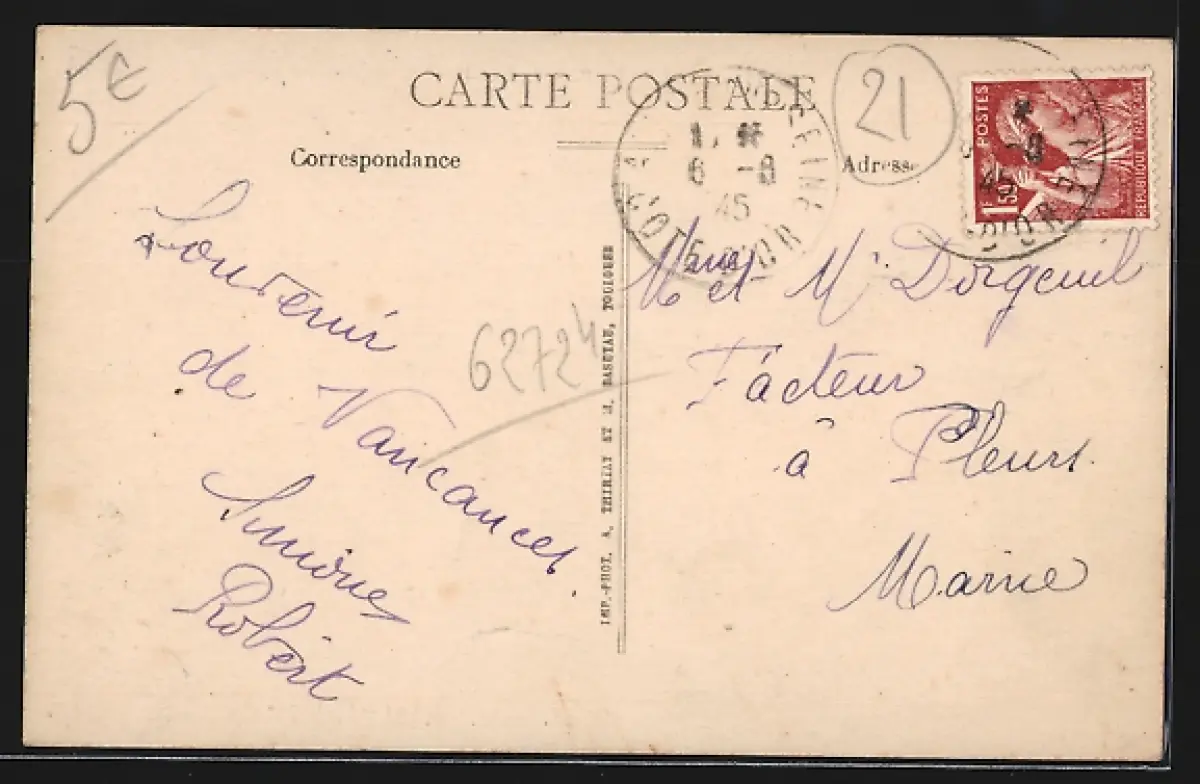 5€
CARTE POSTALE
21
POSTES
1F50
REPUBLIQUE FRANÇAISE
6 -8
45
CÔTE D'OR
Correspondance
Adresse
Souvenir
de Vancances
Simone
Robert
62724
IMP.-PHOT. A. THIRIAT ET M. BASUYAU, TOULOUSE
Mme et Mr Dorgeuil
Facteur
à Pleurs
Marne